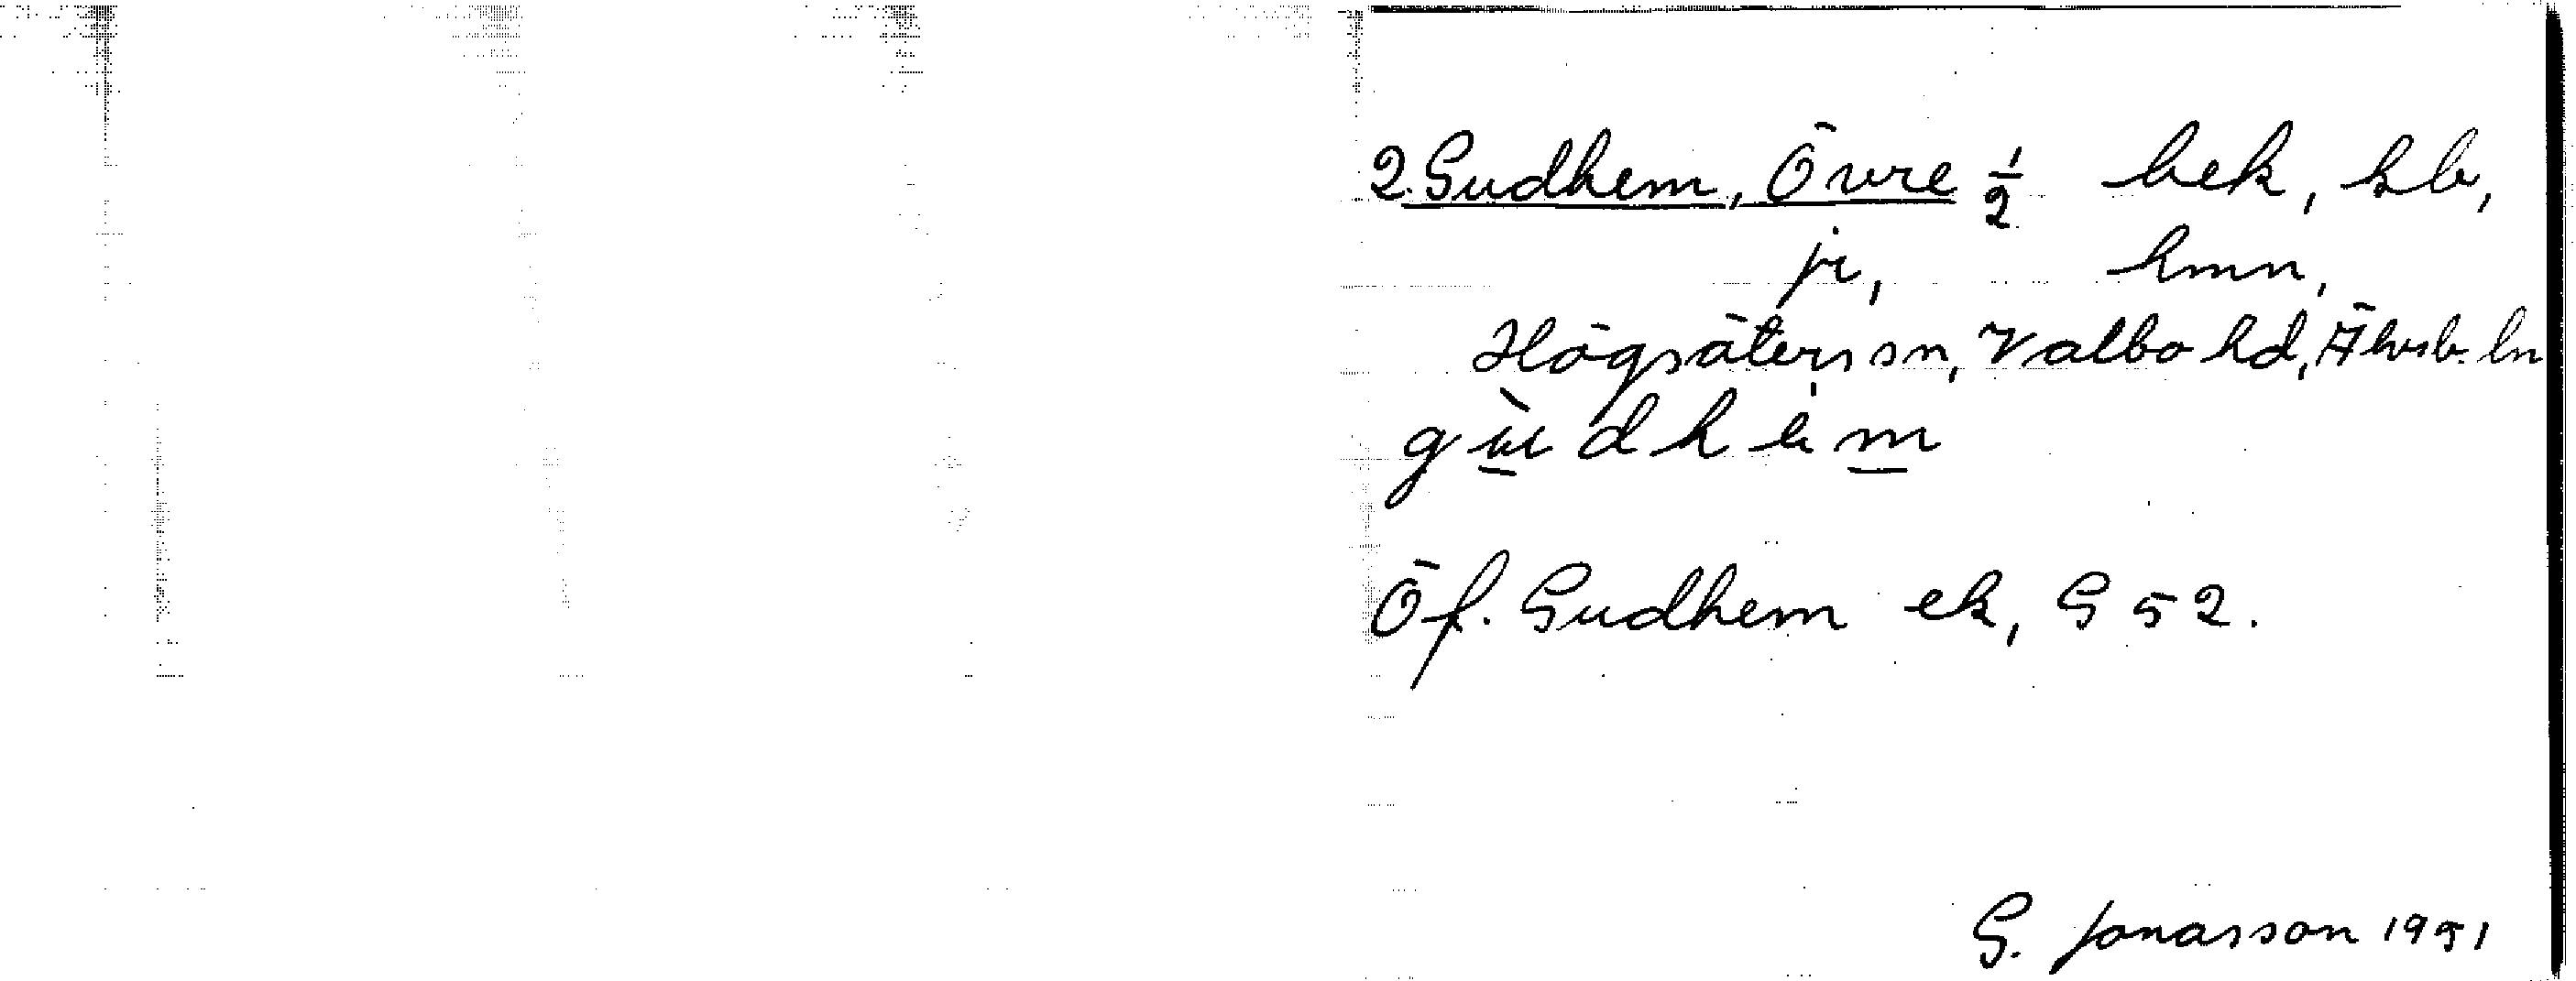 2. Gudhem, Övre 1/2 bek, kb,
jr, hmn,
Högsäters sn, Valbo hd, Älvsb. ln
gùdhèm
Öf. Gudhem ek, G 52.
G. Jonasson 1951